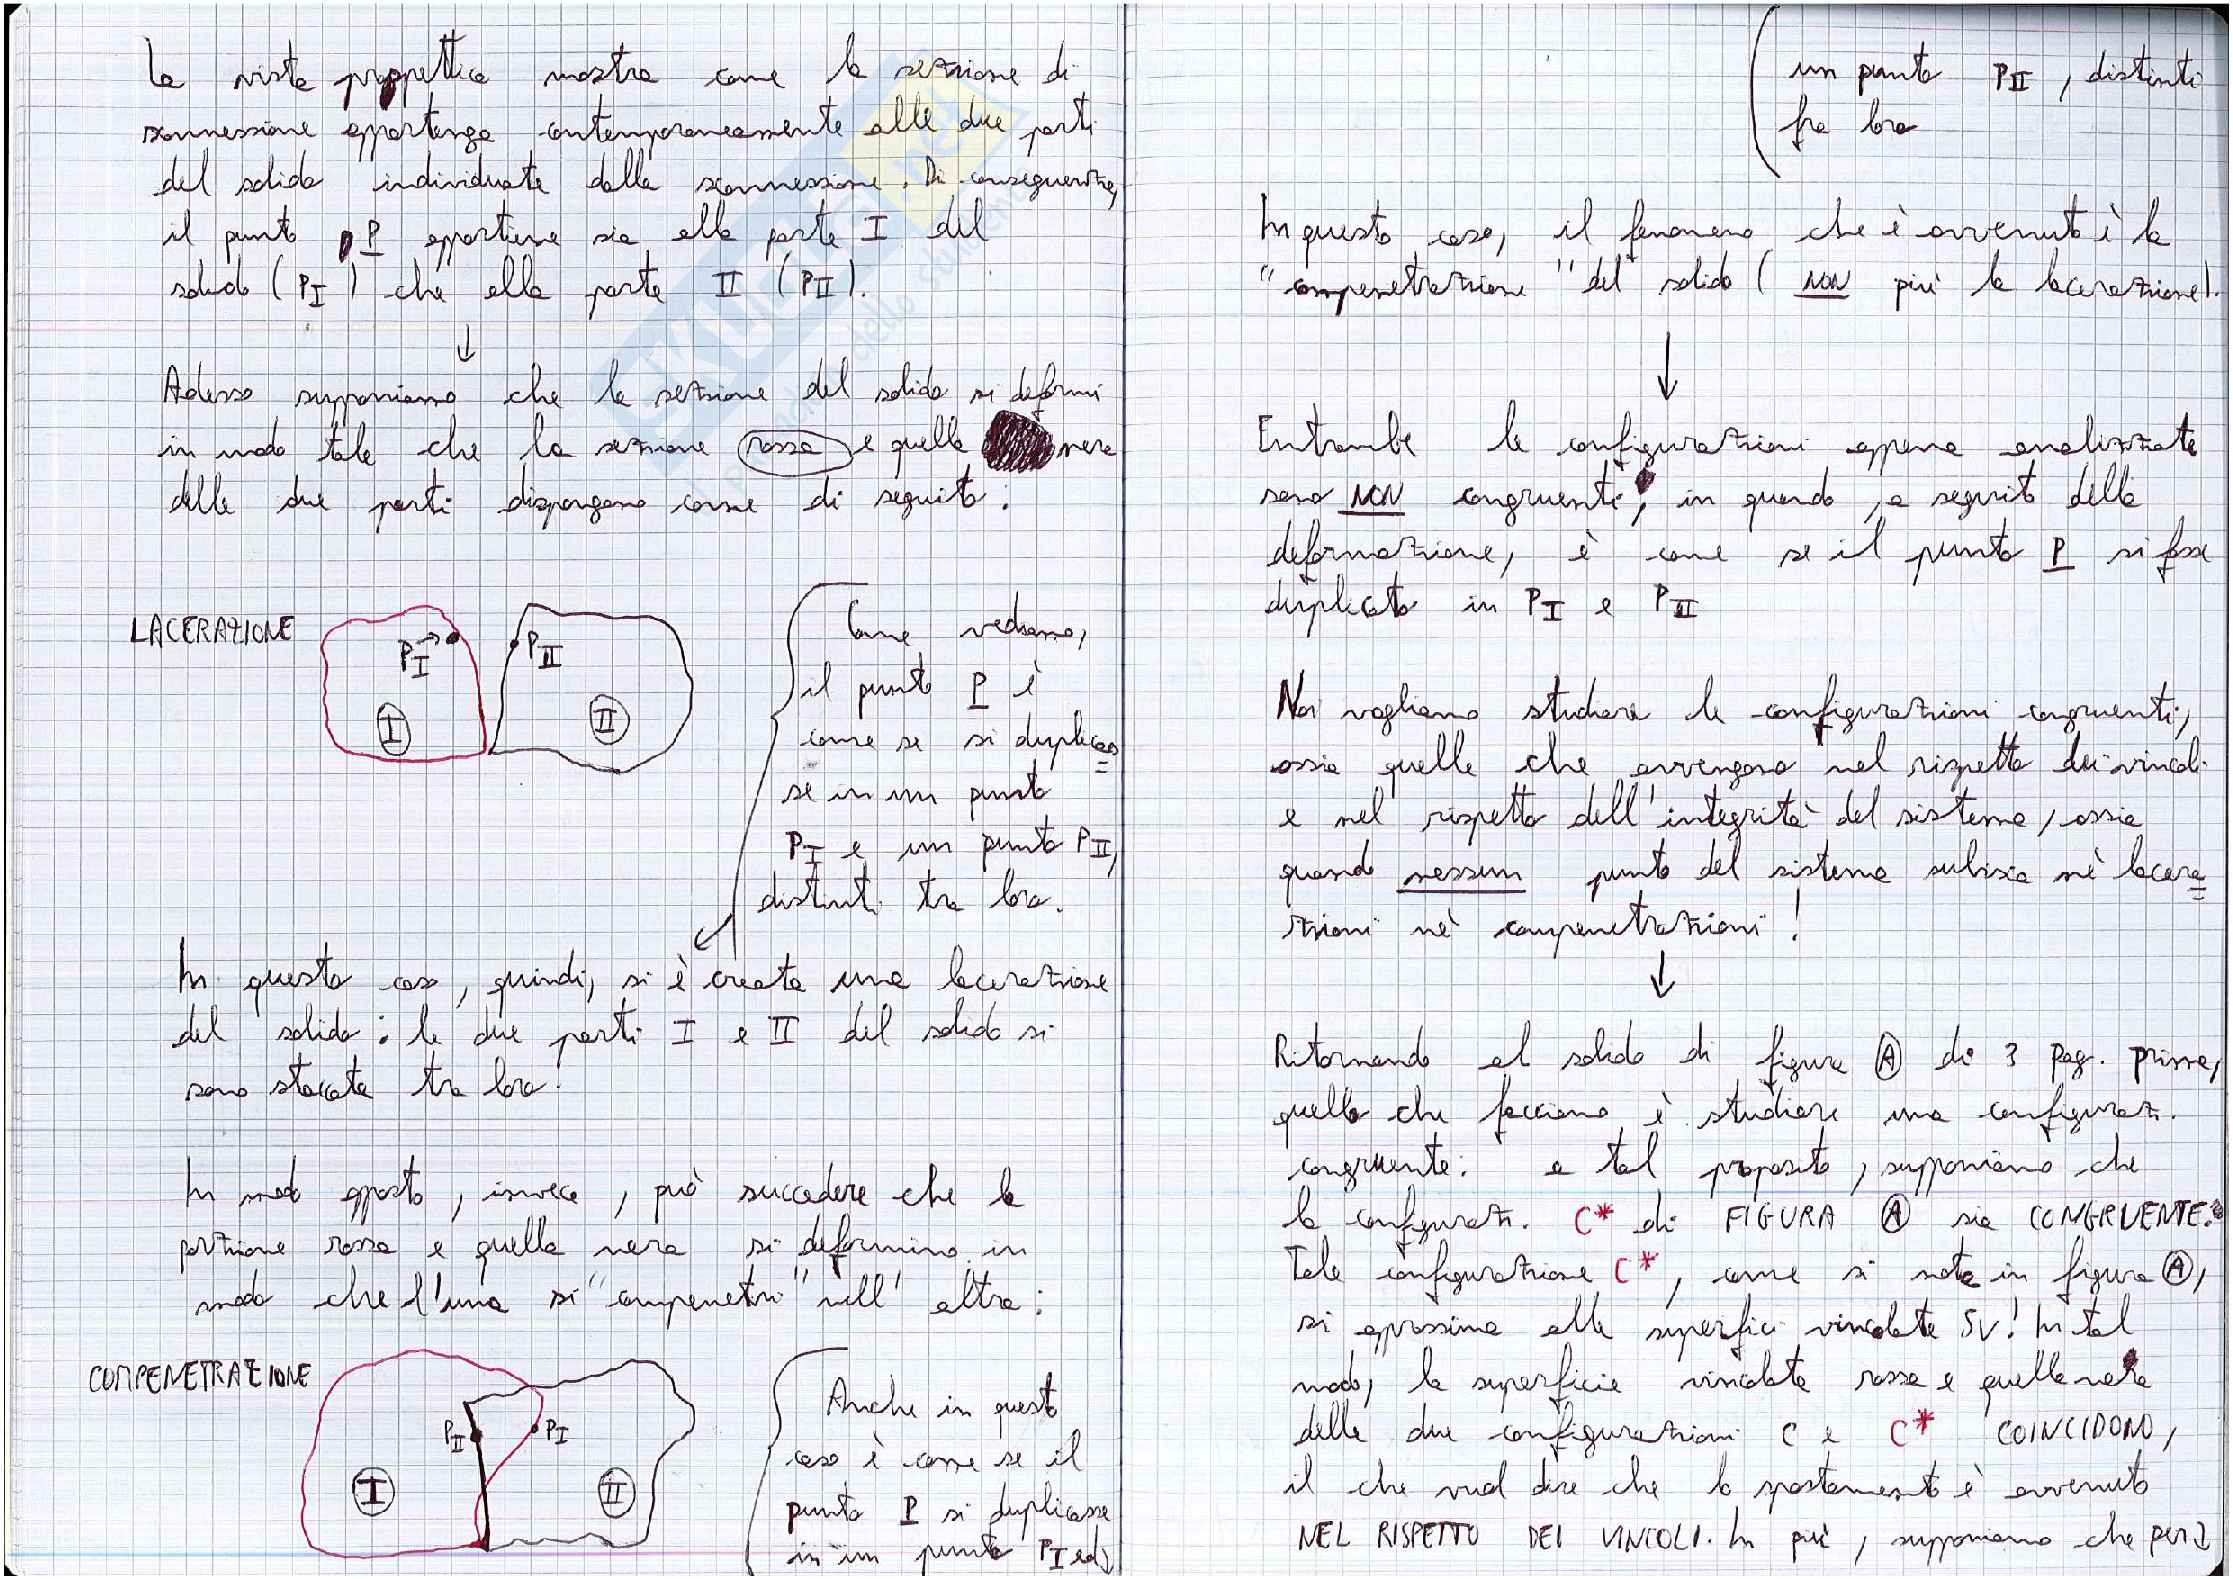 La vista prospettica mostra come la sezione di
sconnessione appartenga contemporaneamente alle due parti
del solido individuate dalla sconnessione. Di conseguenza,
il punto P appartiene sia alla parte I del
solido (PI) che alla parte II (PII).
↓
Adesso supponiamo che la sezione del solido si deformi
in modo tale che la sezione rossa e quella nera
delle due parti dispongano come di seguito:
LACERAZIONE
PI →
I
PII
II
Come vediamo,
il punto P è
come se si duplicas=
se in un punto
PI e un punto PII,
distinti tra loro.
In questo caso, quindi, si è creata una lacerazione
del solido: le due parti I e II del solido si
sono staccate tra loro.
In modo opposto, invece, può succedere che la
porzione rossa e quella nera si deformino in
modo che l'una si "compenetri" nell'altra:
COMPENETRAZIONE
PII
PI
I
II
Anche in questo
caso è come se il
punto P si duplicasse
in un punto PI ed
un punto PII, distinti
fra loro
In questo caso, il fenomeno che è avvenuto è la
"compenetrazione" del solido (NON più la lacerazione).
↓
Entrambe le configurazioni appena analizzate
sono NON congruenti, in quando, a seguito della
deformazione, è come se il punto P si fosse
duplicato in PI e PII
Noi vogliamo studiare le configurazioni congruenti,
ossia quelle che avvengono nel rispetto dei vincoli
e nel rispetto dell'integrità del sistema, ossia
quando nessun punto del sistema subisca nè lacera=
zioni nè compenetrazioni!
↓
Ritornando al solido di figura A di 3 pag. prima,
quello che facciamo è studiare una configuraz.
congruente: a tal proposito, supponiamo che
la configuraz. C* di FIGURA A sia CONGRUENTE.
Tale configurazione C*, come si nota in figura A,
si approssima alle superfici vincolate SV! In tal
modo, la superficie vincolata rossa e quella nera
delle due configurazioni C e C* COINCIDONO,
il che vuol dire che lo spostamento è avvenuto
NEL RISPETTO DEI VINCOLI. In più, supponiamo che per